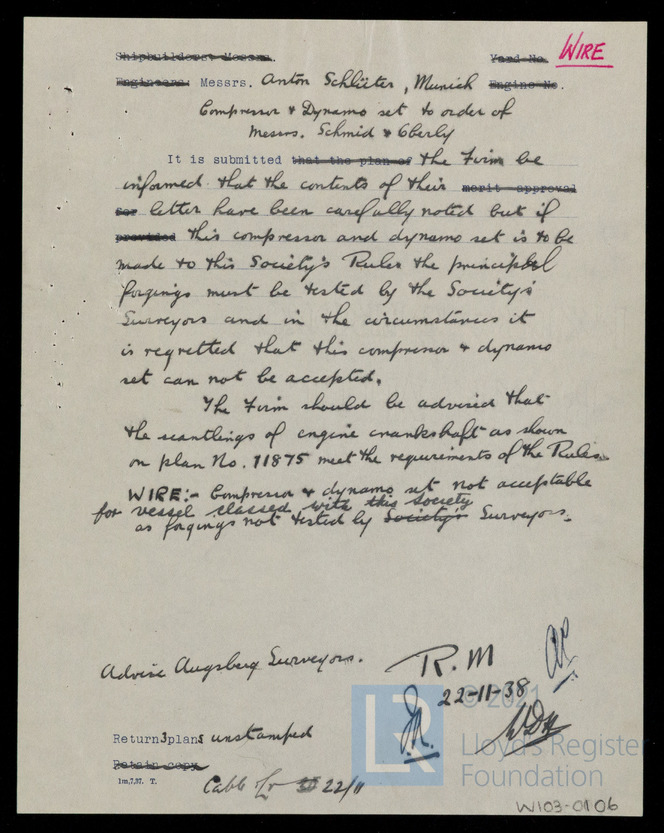 Shipbuilders: Messrs. Yard No. WIRE
Engineers: Messrs. Anton Schlüter, Munich Engine No.
Compressor & Dynamo set to order of
Messrs. Schmid & Oberly
It is submitted that the plan of the Firm be
informed that the contents of their merit approval
for letter have been carefully noted but if
provided this compressor and dynamo set is to be
made to this Society's Rules the principal
forgings must be tested by the Society's
Surveyors and in the circumstances it
is regretted that this compressor & dynamo
set can not be accepted.
The Firm should be advised that
the scantlings of engine crankshaft as shown
on plan No. 11875 meet the requirements of the Rules.
WIRE:- Compressor & dynamo set not acceptable
for vessel classed with this Society
as forgings not tested by Society's Surveyors.
Advise Augsberg Surveyors.
R.M
22-11-38
© 2021
Lloyd's Register
Foundation
LR
Return 3 plans unstamped
Retain copy
1m,7,37. T.
22/11
W103-0106